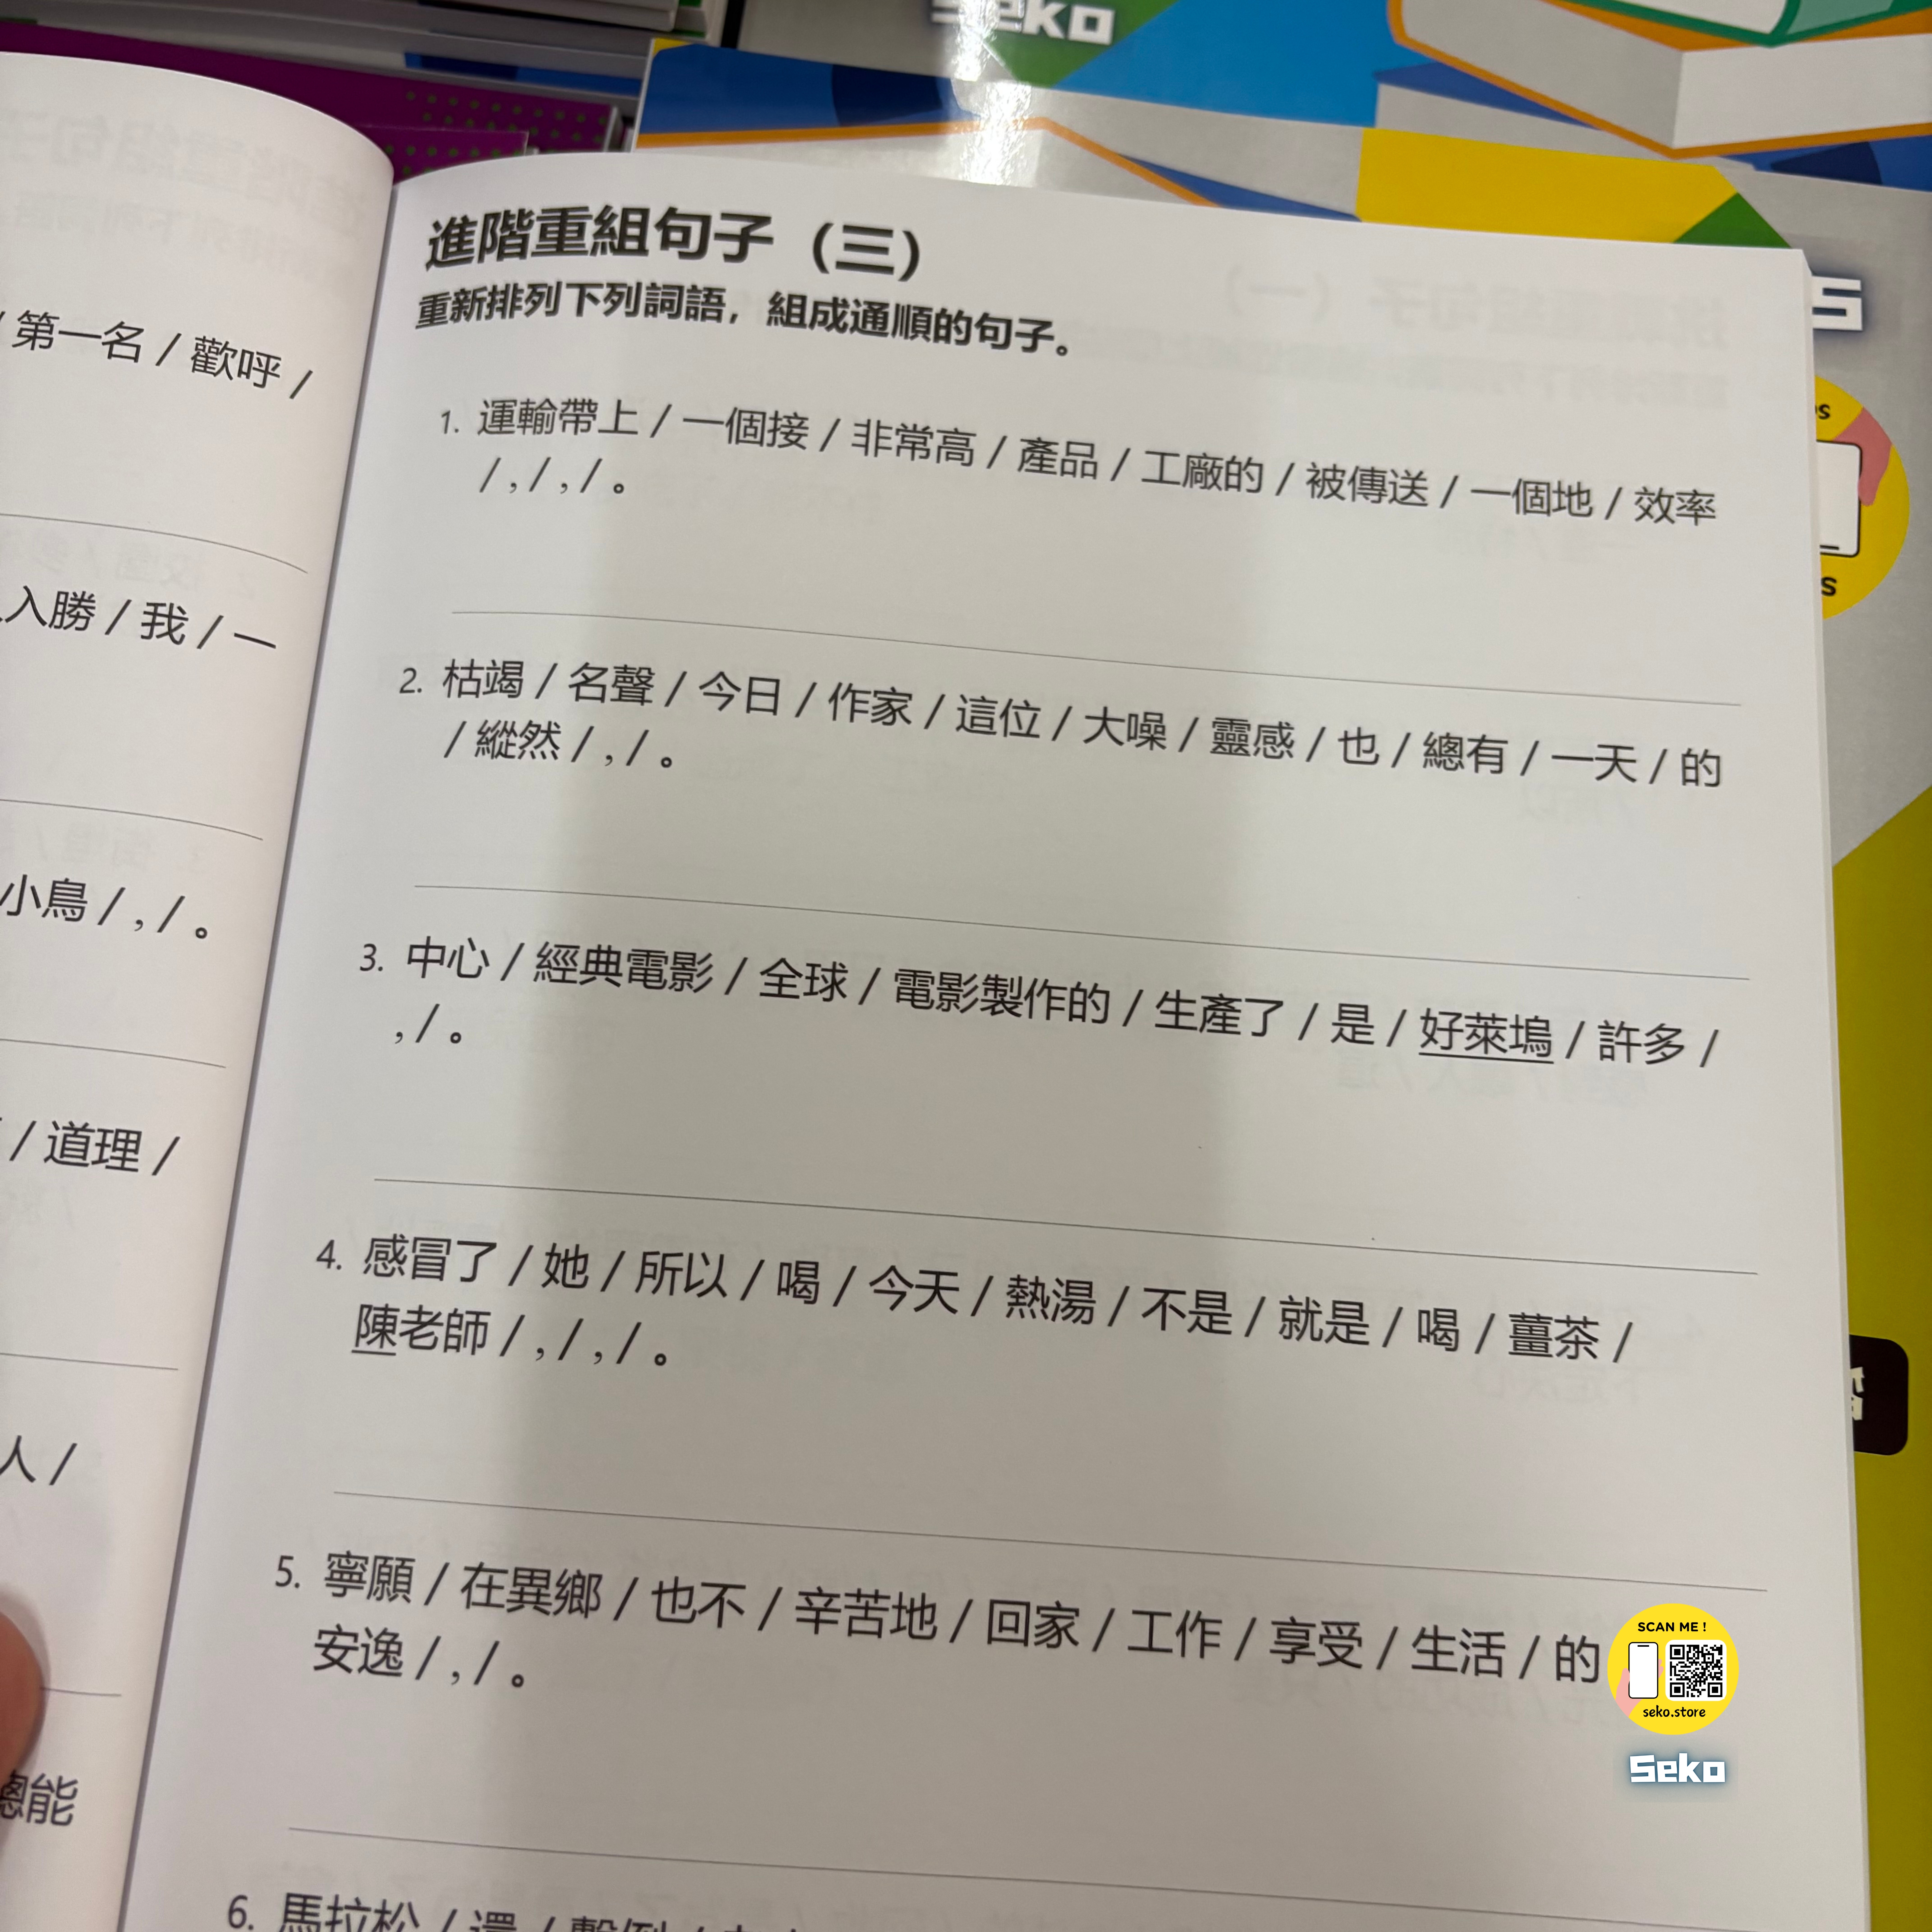 seko
/ 第一名 / 歡呼 /
入勝 / 我 / 一
小鳥 / , / 。
/ 道理 /
人 /
總能
進階重組句子（三）
重新排列下列詞語，組成通順的句子。
1. 運輸帶上 / 一個接 / 非常高 / 產品 / 工廠的 / 被傳送 / 一個地 / 效率
/ , / , / 。
2. 枯竭 / 名聲 / 今日 / 作家 / 這位 / 大噪 / 靈感 / 也 / 總有 / 一天 / 的
/ 縱然 / , / 。
3. 中心 / 經典電影 / 全球 / 電影製作的 / 生產了 / 是 / 好萊塢 / 許多 /
, / 。
4. 感冒了 / 她 / 所以 / 喝 / 今天 / 熱湯 / 不是 / 就是 / 喝 / 薑茶 /
陳老師 / , / , / 。
5. 寧願 / 在異鄉 / 也不 / 辛苦地 / 回家 / 工作 / 享受 / 生活 / 的
安逸 / , / 。
6. 馬拉松 / 還 / 擊倒 /
SCAN ME !
seko.store
Seko